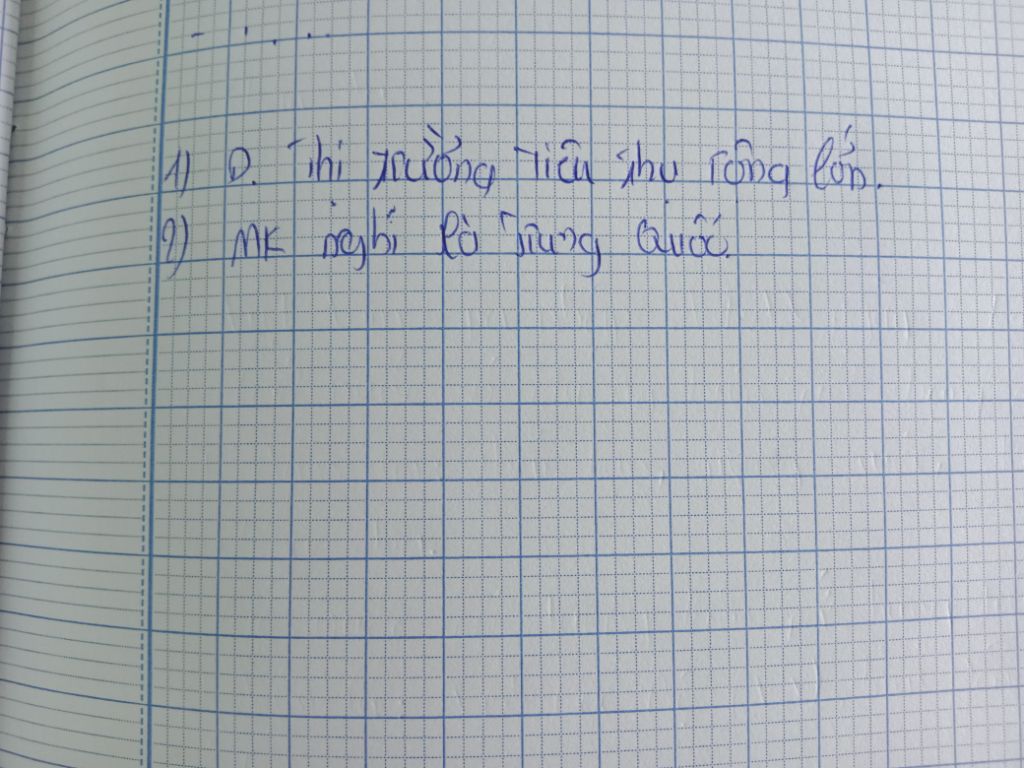 1) D. Thị trường tiêu thụ rộng lớn.
2) MK nghĩ là Trung Quốc.